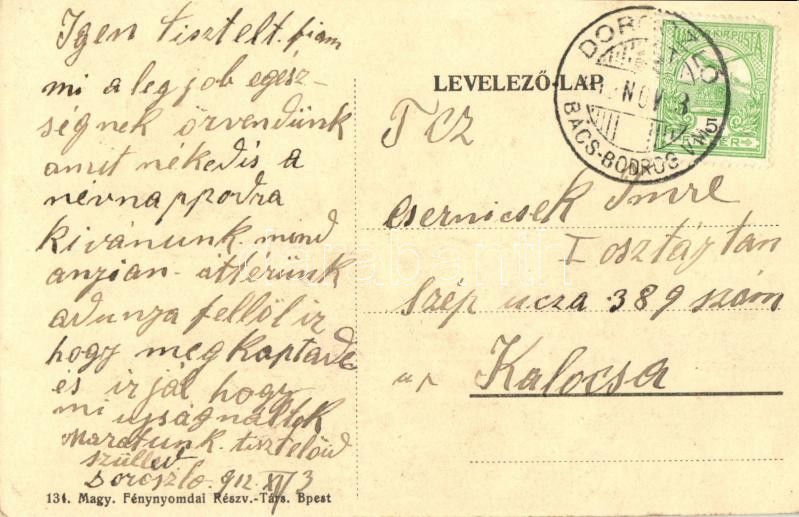 Igen tisztelt fiam
mi a leg job egész-
ségnek örvendünk
amit nékedis a
névnappodra
kivánunk mind
anzian
adunza fellöl ir
hogy meg kaptade
és irjál hogy
mi ujság náltok
Maradunk tisztelöid
szülleid
Doroszlo 912 XI/3
134. Magy. Fénynyomdai Részv.-Társ. Bpest
LEVELEZŐ-LAP
DOROSZLÓ
NOV 3
BÁCS-BODROG VM
KIR. POSTA
5
T CZ
Csernicsek Imre
I osztáj tan
Szép ucza 389 szám
Kalocsa
darabanth